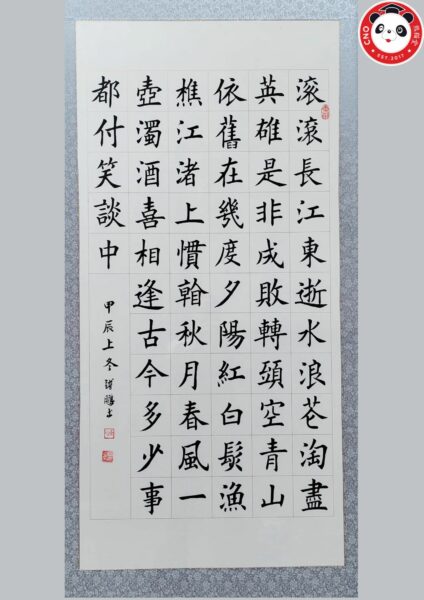 滚滚長江東逝水浪花淘盡
英雄是非成敗轉頭空青山
依舊在幾度夕陽紅白髮漁
樵江渚上慣看秋月春風一
壺濁酒喜相逢古今多少事
都付笑談中
甲辰上冬
CNO
EST.2017